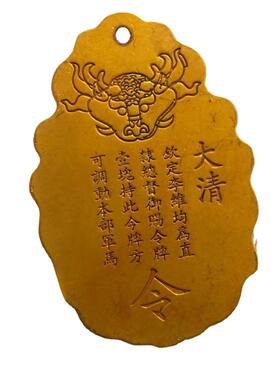 大清
欽定李維均為直
隸總督御賜令牌
壹塊持此令牌方
可調動本部軍馬
令